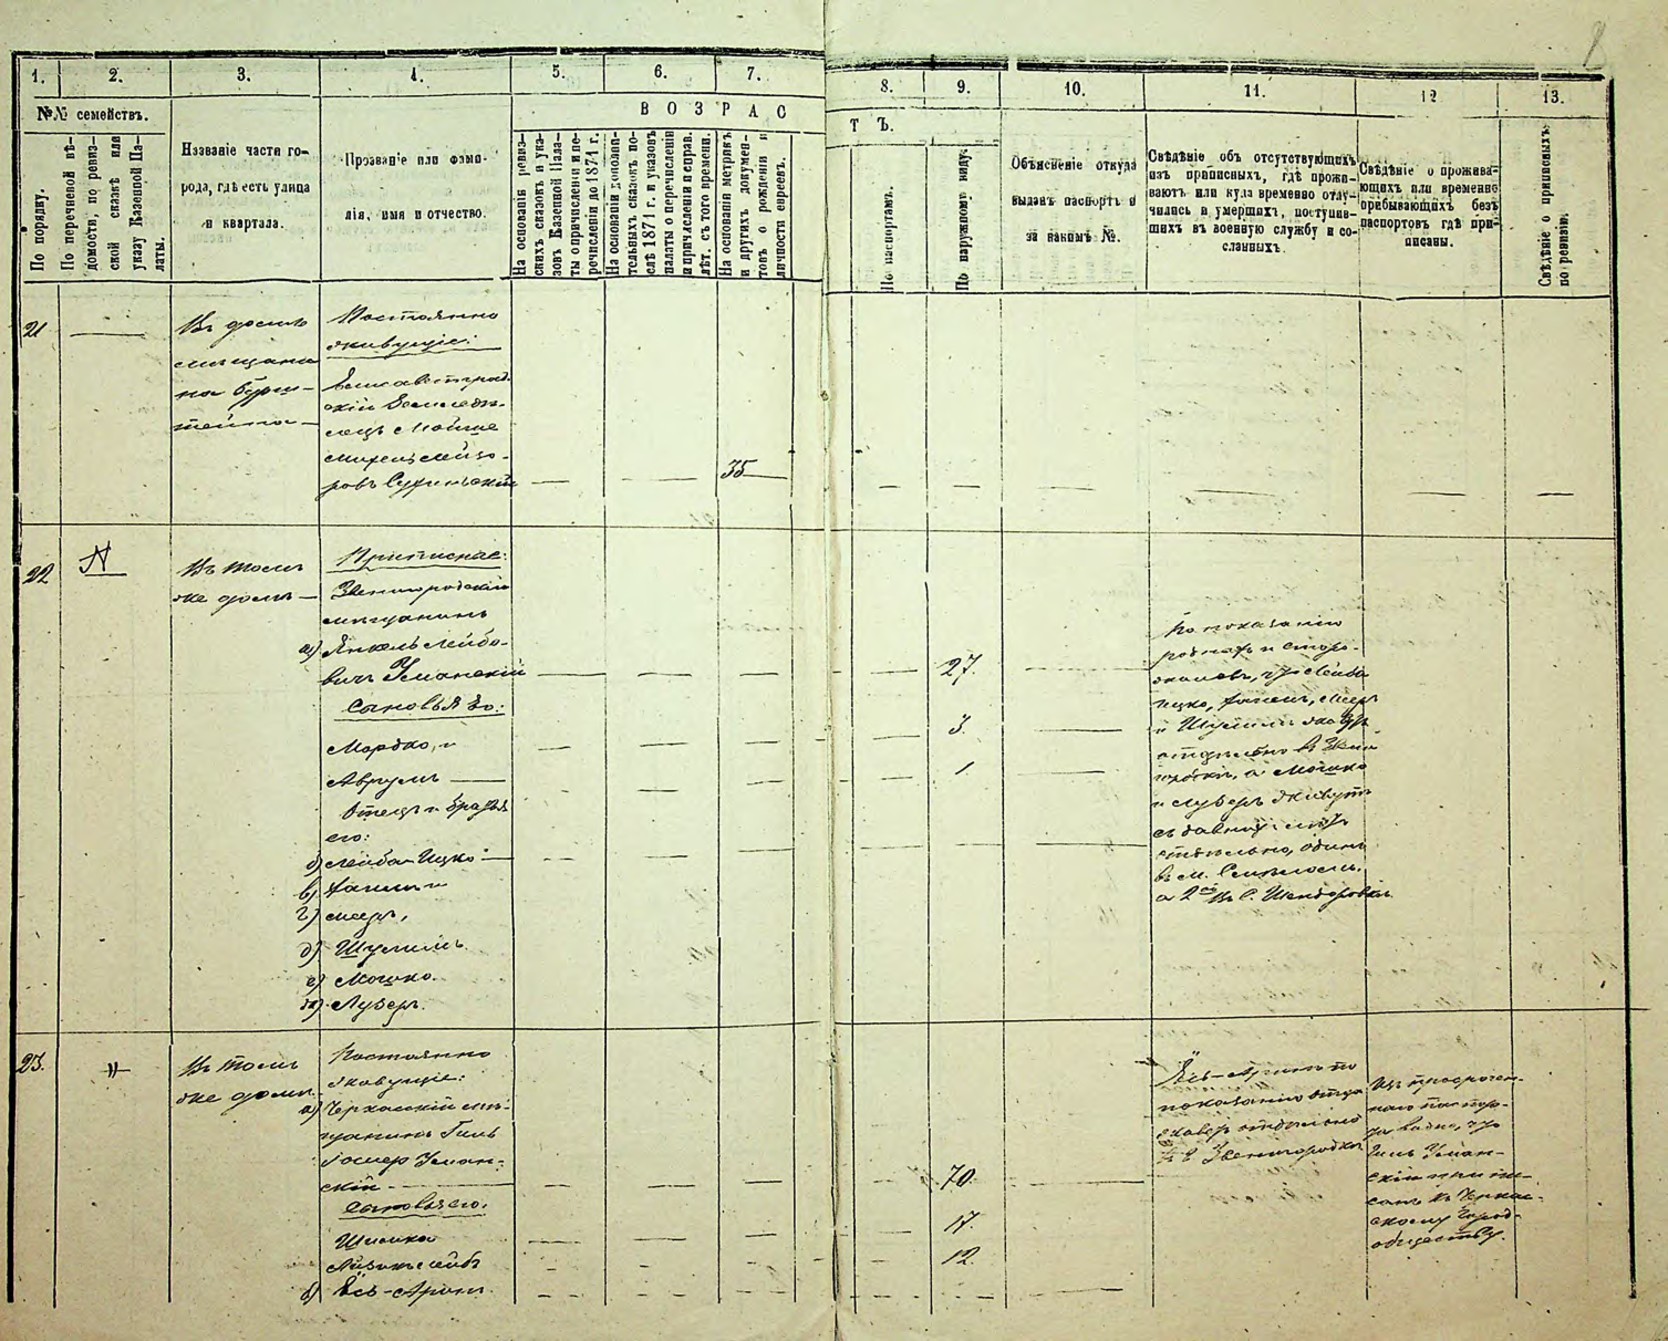 8
1. 2. 3. 4. 5. 6. 7. 8. 9. 10. 11. 12 13.
№№ семействъ.
По порядку.
По перечневой вѣ-
домости, по ревиз-
ской сказкѣ или
указу Казенной Па-
латы.
Названіе части го-
рода, гдѣ есть улица
и квартала.
Прозваніе или фами-
лія, имя и отчество.
ВОЗРАСТЪ.
На основаніи ревиз-
скихъ сказокъ и ука-
зовъ Казенной Пала-
ты о причисленіи и пе-
речисленіи до 1874 г.
На основаніи дополни-
тельныхъ сказокъ по-
слѣ 1871 г. и указовъ
палаты о перечисленіи
и причисленіи и справ.
лѣт. съ того времени.
На основаніи метрикъ
и другихъ докумен-
товъ о рожденіи и
личности евреевъ.
По паспортамъ.
По наружному виду.
Объясненіе откуда
выданъ паспортъ и
за какимъ №.
Свѣдѣніе объ отсутствующихъ
изъ приписныхъ, гдѣ прожи-
ваютъ или куда временно отлу-
чились и умершихъ, поступив-
шихъ въ военную службу и со-
сланныхъ.
Свѣдѣніе о прожива-
ющихъ или временно
прибывающихъ безъ
паспортовъ гдѣ при-
писаны.
Свѣдѣніе о приписныхъ
по ревизіи.
21
Въ домѣ
мѣщани
на Бурш-
тейна
Постоянно
живущіе:
Елисаветград.
скій
Мойше
35
22
N
Въ томъ
же домѣ
Приписные:
Звенигородскій
мѣщанинъ
а) Янкель Лейбо-
вичъ Уманскій
27.
Сыновья его:
Мордко, и
3.
Аврумъ
1.
Отецъ и братья
его:
б) Лейба-Ицко
в)
г) Меер,
д) Шулимъ
е) Мошко.
ж) Лузеръ.
По показанію
родныхъ и сторо-
жиловъ, что Лейба
Ицко, Меер
и Шулимъ живутъ
отдѣльно въ Звени
городкѣ, а Мошко
и Лузеръ живутъ
съ давнихъ лѣтъ
отдѣльно, одинъ
въ м.
а 2ой въ С. Шендеровкѣ
23.
"
Въ томъ
же домѣ
Постоянно
живущіе:
а) Черкасскій мѣ-
щанинъ Гиль
Уман-
скій
70.
Сыновья его:
Шимка
17.
12.
б) Ёсь-Аронъ
Ёсь-Аронъ по
показанію отца
живетъ отдѣльно
въ г Звенигородкѣ
Изъ просрочен-
наго паспор-
та видно, что
Гиль Уман-
скій припи-
санъ къ Черкас-
скому Город.
обществу.